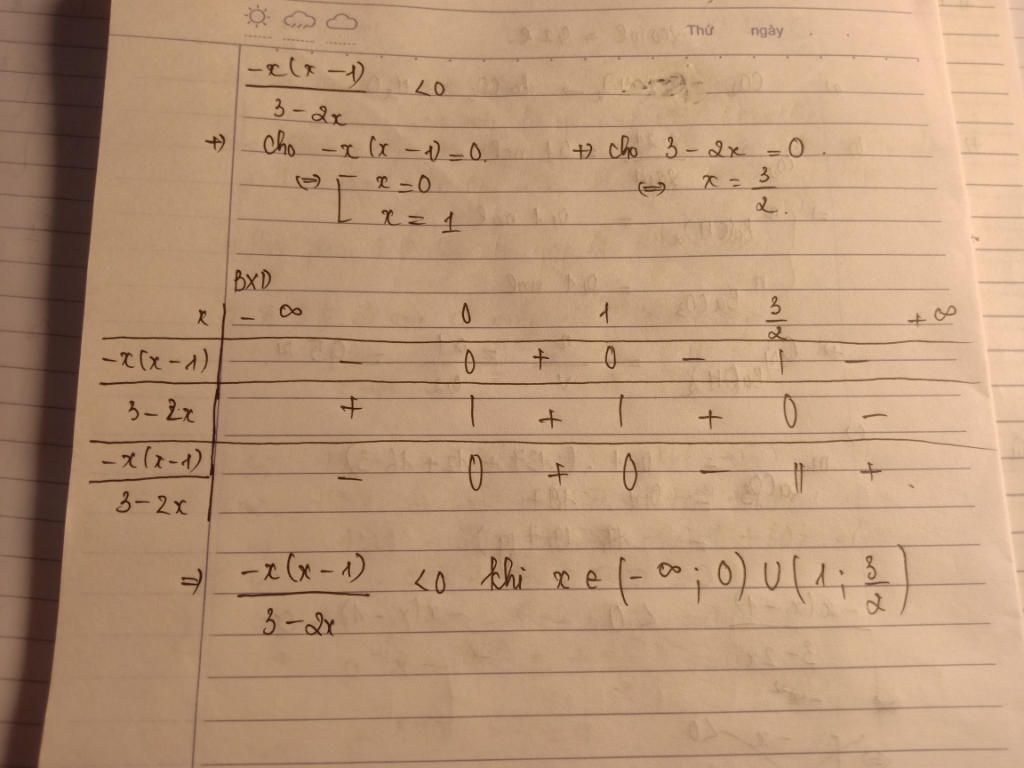 Thứ ngày
-x(x-1)/(3-2x) <0
+) Cho -x(x-1)=0. +) Cho 3-2x=0.
⇔ [ x=0 ⇔ x = 3/2.
x = 1
BXD
x -∞ 0 1 3/2 +∞
-x(x-1) - 0 + 0 - | -
3-2x + | + | + 0 -
-x(x-1)/(3-2x) - 0 + 0 - || +
⇒ -x(x-1)/(3-2x) <0 khi x ∈ (-∞; 0) ∪ (1; 3/2)